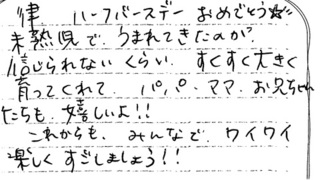 律 ハーフバースデー おめでとう☆
未熟児で、うまれてきたのが?
信じられない くらい、すくすく大きく
育ってくれて、パパ・ママ、お兄ちゃん
たちも、嬉しいよ!!
これからも、みんなで、ワイワイ
楽しく すごしましょう!!